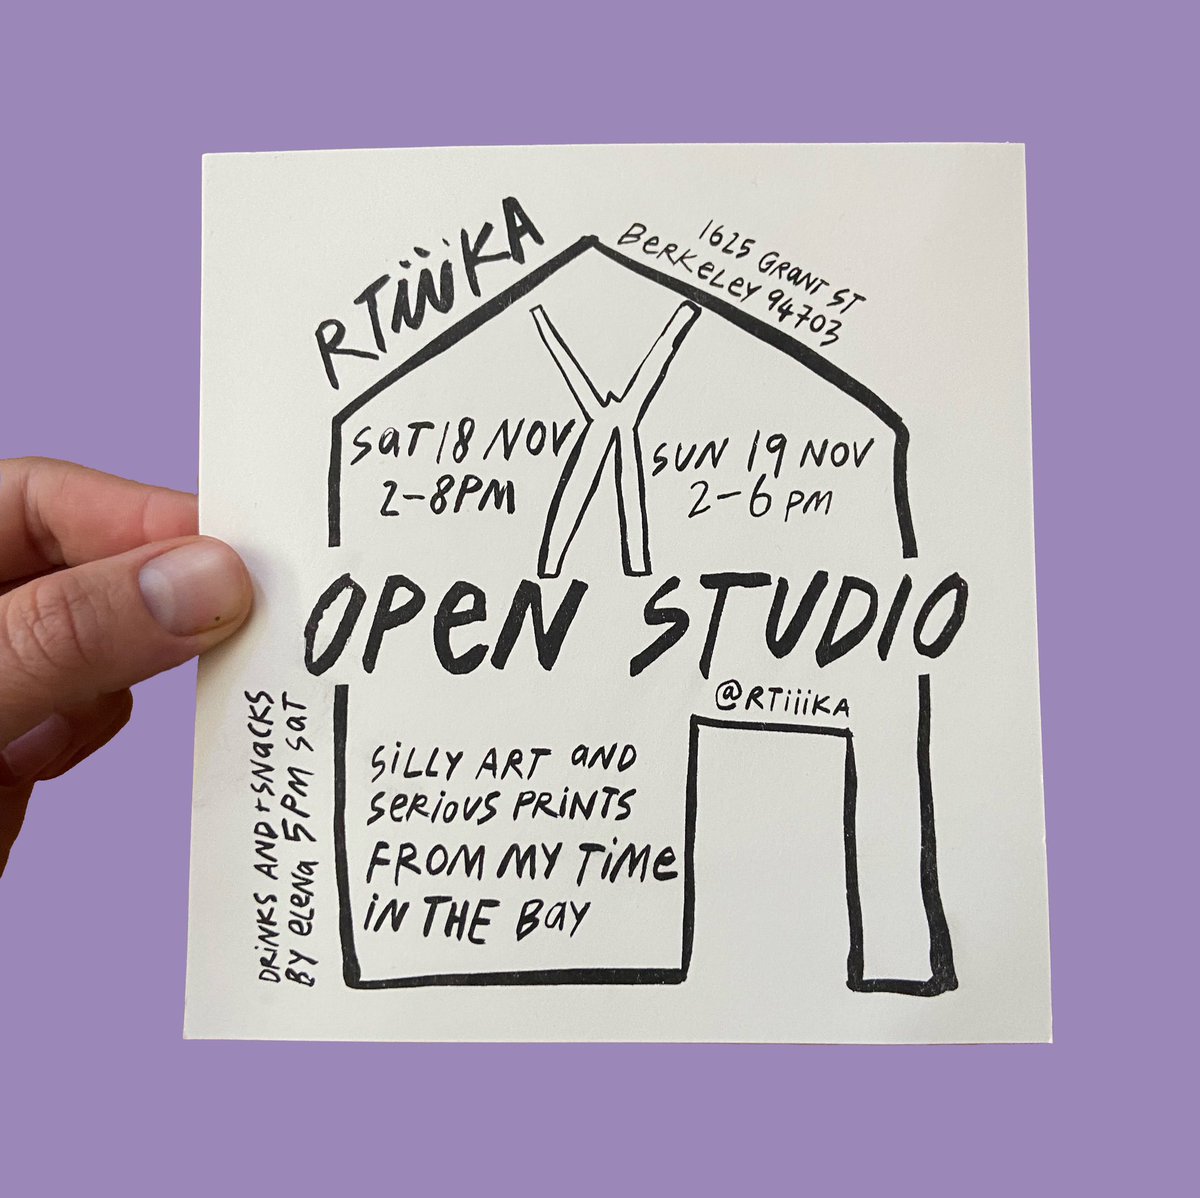 RTiiiKA
1625 GRANT ST
BERKELEY 94703
SAT 18 NOV
2-8PM
SUN 19 NOV
2-6PM
OPEN STUDIO
@RTiiiKA
SILLY ART AND
SERIOUS PRINTS
FROM MY TIME
IN THE BAY
DRINKS AND + SNACKS
BY ELENA 5PM SAT